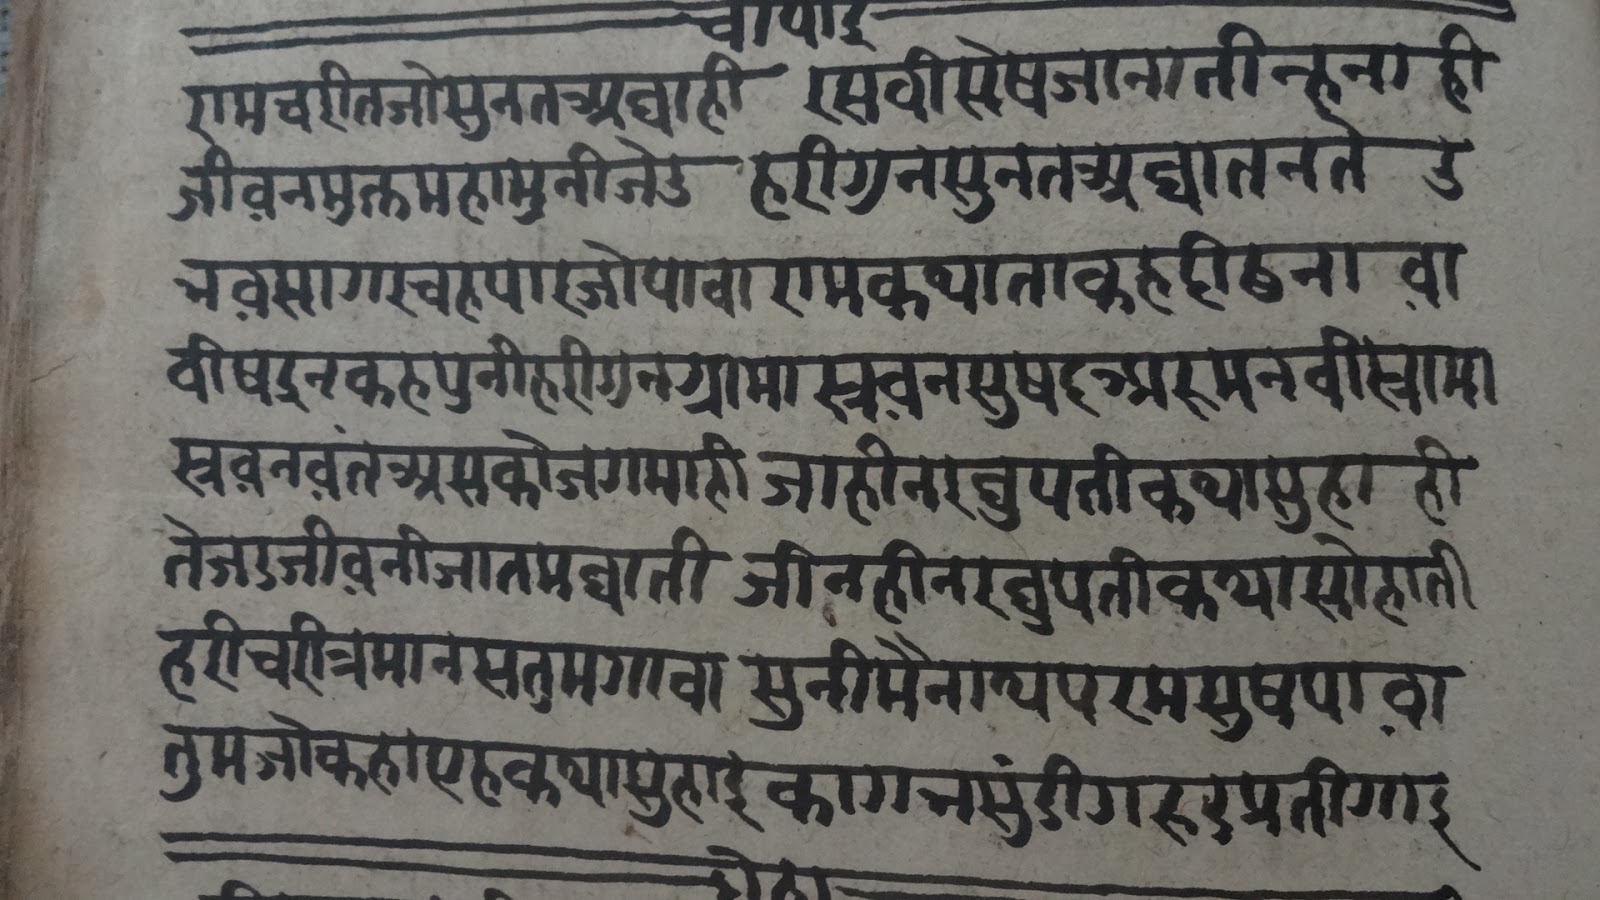 चौपाइ
रामचरीतजोसुनतअघाही रसवीसेषजानातीन्हनाही
जीवनमुक्तमहामुनीजेउ हरीगुनसुनतअघातनतेउ
भवसागरचहपारजोपावा रामकथाताकहद्रीढनावा
वीषइनकहपुनीहरीगुनग्रामा स्रवनसुषदअरुमनवीस्रामा
स्रवनवंतअसकोजगमाही जाहीनरघुपतीकथासुहाही
तेजडजीवनीजातमघाती जीनहीनरघुपतीकथासोहाती
हरीचरीत्रमानसतुमगावा सुनीमैनाथपरमसुषपावा
तुमजोकहीएहकथासुहाइ कागभसुंडीगरुडप्रतीगाइ
दोहा